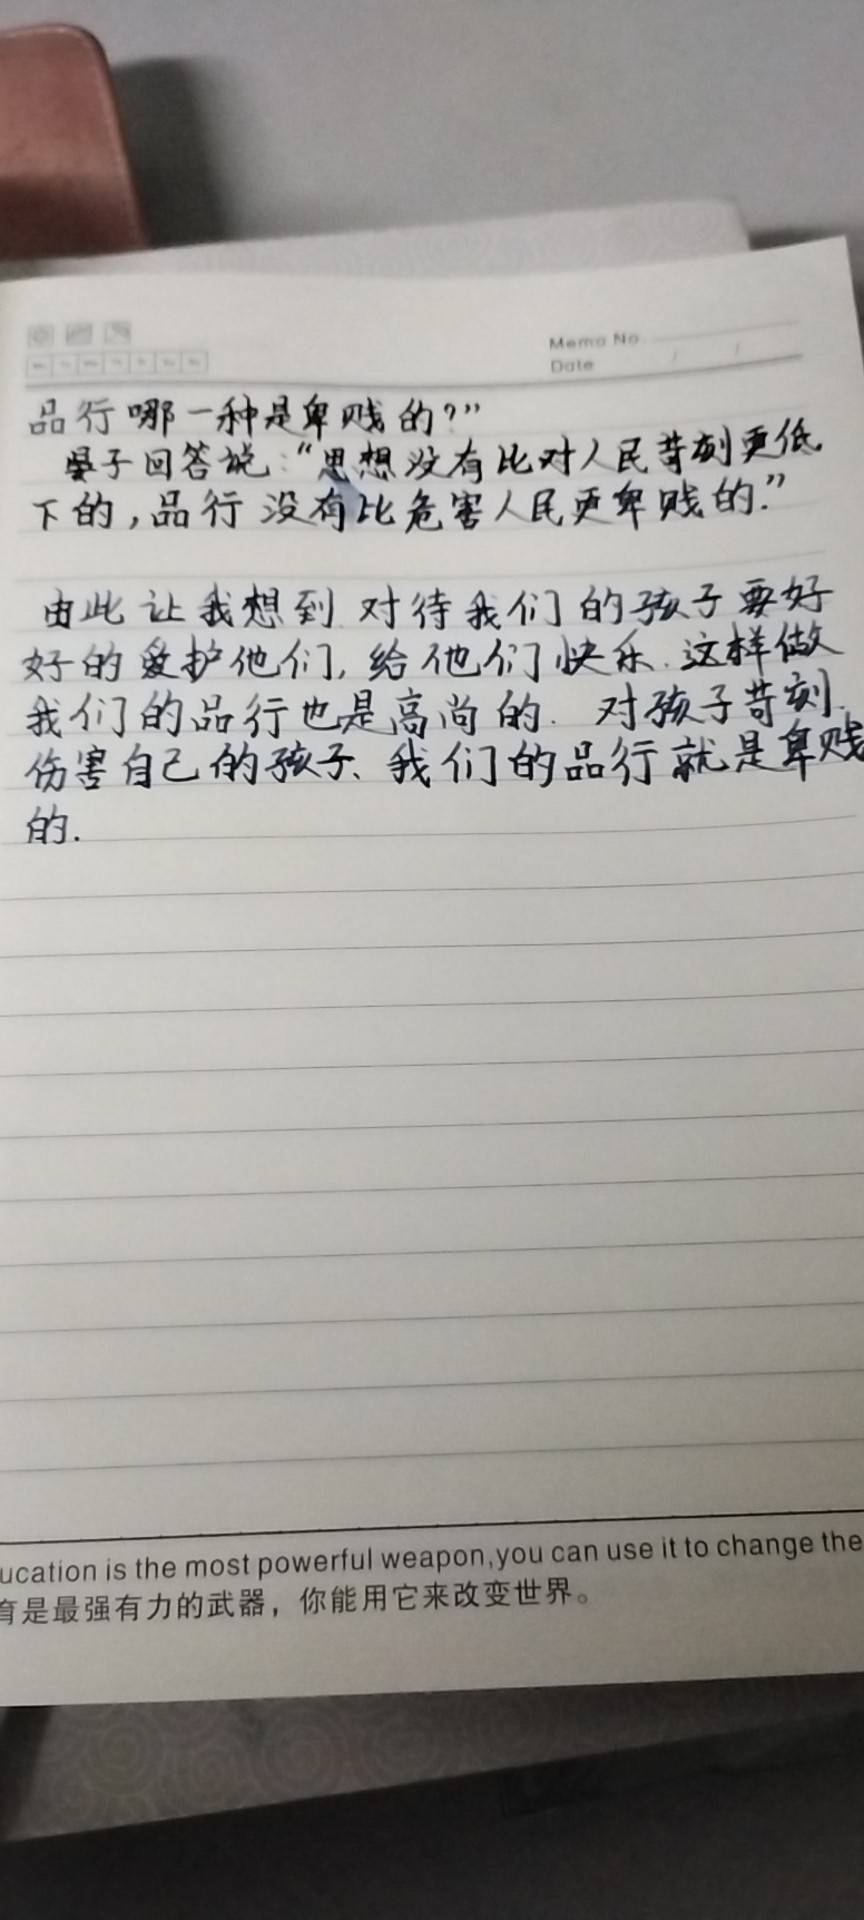 Memo No.
Date / /
品行哪一种是卑贱的？”
晏子回答说：“思想没有比对人民苛刻更低
下的，品行没有比危害人民更卑贱的.”
由此让我想到对待我们的孩子要好
好的爱护他们，给他们快乐.这样做
我们的品行也是高尚的.对孩子苛刻.
伤害自己的孩子、我们的品行就是卑贱
的.
ucation is the most powerful weapon,you can use it to change the
育是最强有力的武器，你能用它来改变世界。